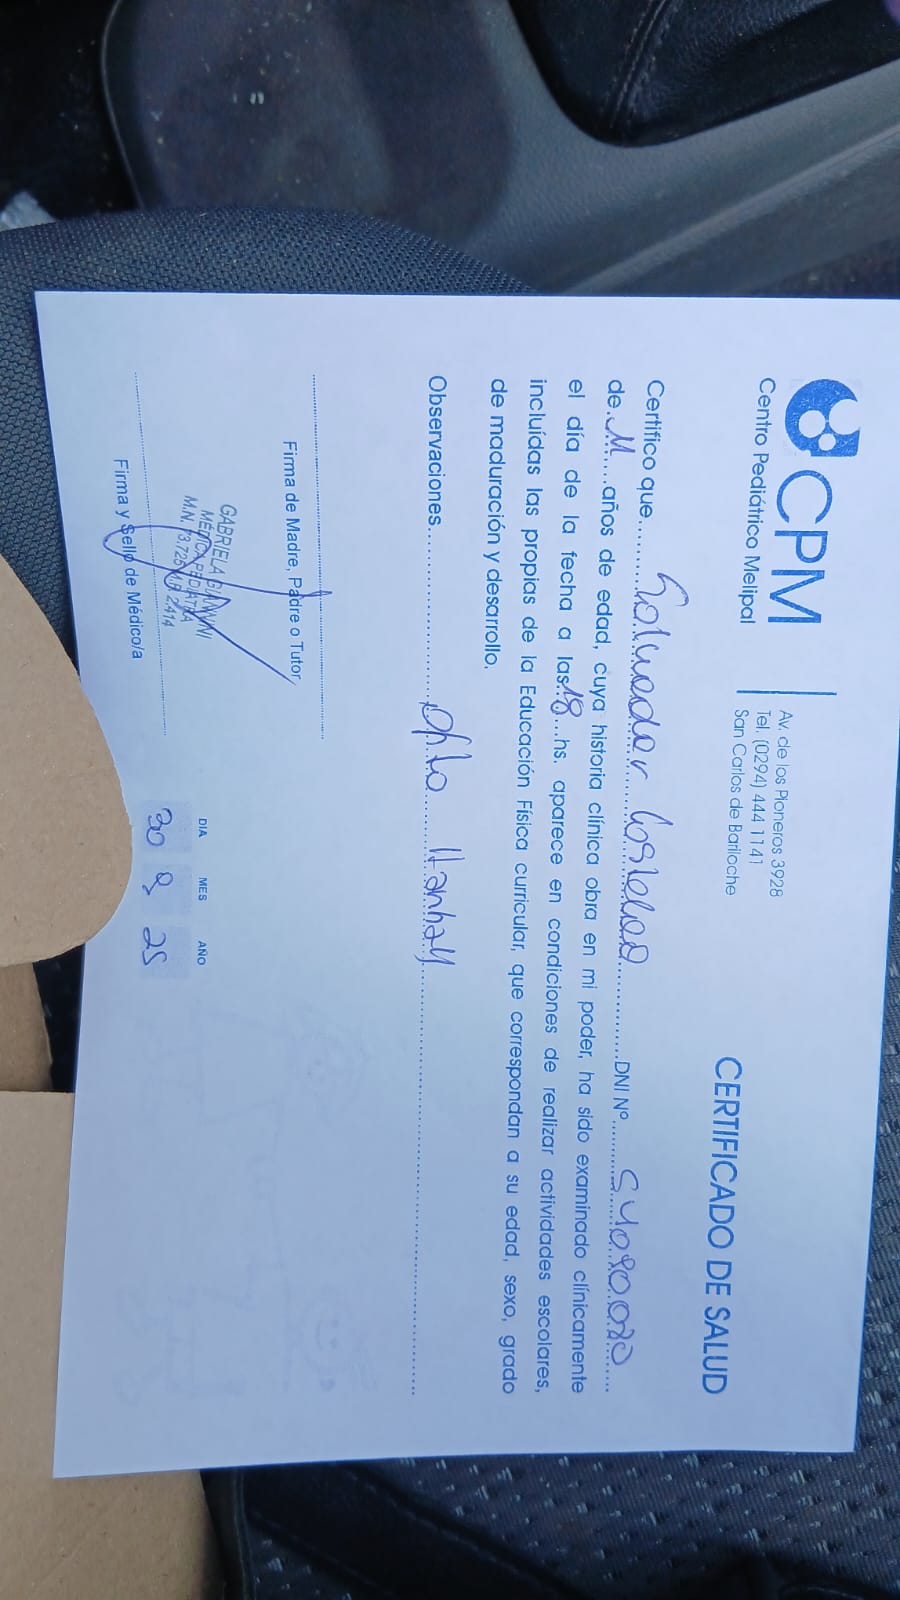 CPM
Centro Pediátrico Melipal
Av. de los Pioneros 3928
Tel. (0294) 444 1141
San Carlos de Bariloche
CERTIFICADO DE SALUD
Certifico que.......................DNI Nº..........
de..........años de edad, cuya historia clínica obra en mi poder, ha sido examinado clínicamente
el día de la fecha a las 18 hs. aparece en condiciones de realizar actividades escolares,
incluídas las propias de la Educación Física curricular, que correspondan a su edad, sexo, grado
de maduración y desarrollo.
Observaciones................ Apto
Firma de Madre, Padre o Tutor
GABRIELA
MÉDICA PEDIATRA
Firma y Sello de Médico/a
DIA MES AÑO
30 9 25